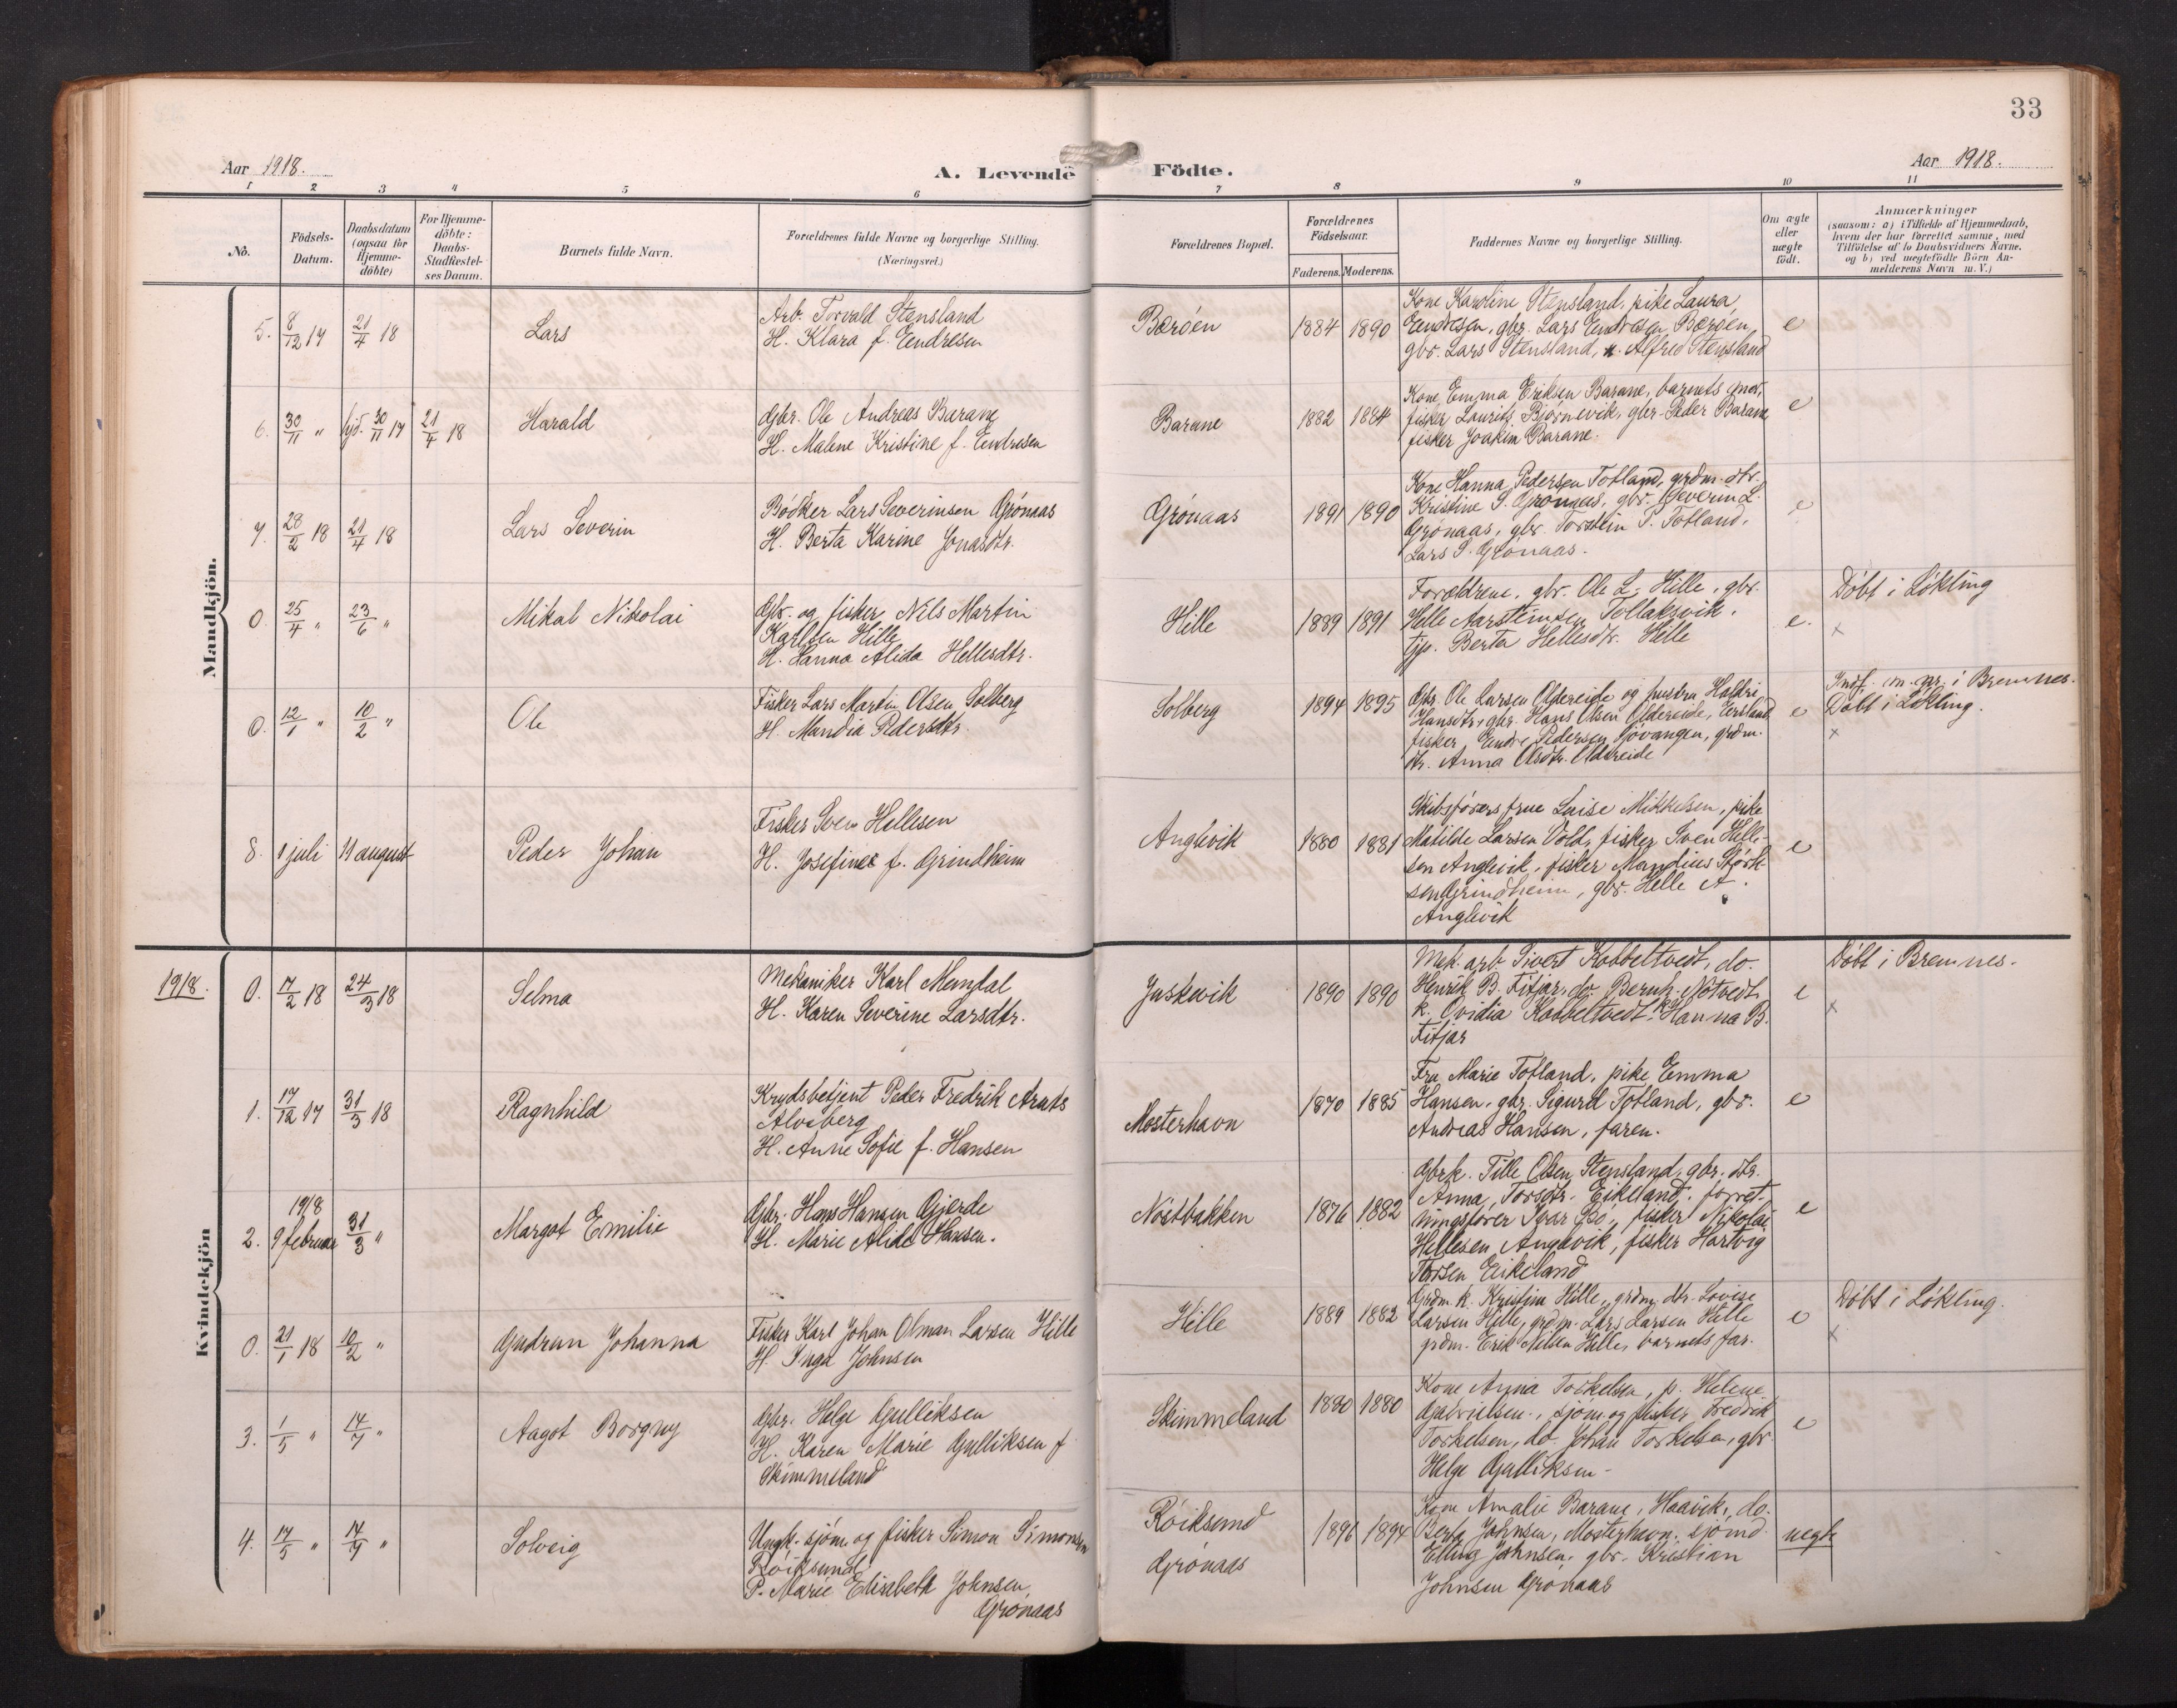 33
Aar 1918.
A. Levende Födte.
Aar 1918.
1 2 3 4 5 6 7 8 9 10 11
No.
Födsels-
Datum.
Daabsdatum
(ogsaa for
Hjemme-
döbte)
For Hjemme-
döbte:
Daabs-
Stadfæstel-
ses Datum.
Barnets fulde Navn.
Forældrenes fulde Navne og borgerlige Stilling.
(Næringsvei.)
Forældrenes Bopæl.
Forældrenes
Födselsaar.
Faderens. Moderens.
Faddernes Navne og borgerlige Stilling.
Om ægte
eller
uægte
födt.
Anmærkninger
(saasom: a) i Tilfælde af Hjemmedaab,
hvem der har forrettet samme, med
Tilföielse af to Daabsvidners Navne.
og b) ved uegtefödte Börn An-
melderens Navn m. V.)
Mandkjön.
5. 8/12 17 21/4 18 Lars
Arb. Torvald Stensland
H. Klara f. Endresen
Börøen 1884 1890
Kone Karoline Stensland, pike Laura
Endresen, gbr. Lars Endresen Børøen,
gbr. Lars Stensland, Alfred Stensland
e
6. 30/11 " hjd. 30/11 17 21/4 18 Harald
Gbr. Ole Andreas Barane
H. Malene Kristine f. Endresen
Barane 1882 1884
Kone Emma Eriksen Barane, barnets mor,
fisker Laurits Bjørnevik, gbr. Peder Barane
fisker Joakim Barane.
e
7. 28/2 18 21/4 18 Lars Severin
Bødker Lars Severinsen Grønaas
H. Berta Karine Jonasdtr.
Grønaas 1891 1890
Kone Hanna Pedersen Totland, grdm. dtr.
Kristine S. Grønaas, gbr. Severin L.
Grønaas, gbr. Torstein P. Totland,
Lars S. Grønaas.
e
0. 25/4 " 23/6 " Mikal Nikolai
Gbr. og fisker Nils Martin
Karlsen Hille
H. Hanna Alida Hellesdtr.
Hille 1889 1891
Forældrene, gbr. Ole L. Hille, gbr.
Helle Aarsteinsen Tollaksvik,
tjp. Berta Hellesdtr. Hille
e.
Döbt i Lökling
x
0. 12/1 " 10/2 " Ole
Fisker Lars Martin Olsen Solberg
H. Mandia Pedersdtr.
Solberg 1894 1895
Gbr. Ole Larsen Oldereide og hustru
Hansdtr, gbr. Hans Olsen Oldereide,
fisker Endre Pedersen Sjøvangen, grdm.
dtr. Anna Olsdtr. Oldereide
e
Indf. m. nr. i Bremnes.
Döbt i Lökling.
x
8. 1 juli 11 august Peder Johan
Fisker Sven Hellesen
H. Josefine f. Grindheim
Anglevik 1880 1881
Skibsførers frue Luise Mikkelsen, pike
Matilde Larsen Vold, fisker Sven Helle-
sen Anglevik, fisker Mandius Størk-
sen Grindheim, gbr. Helle A.
Anglevik
e
1918.
Kvindekjön
0. 17/2 18 24/3 18 Selma
Mekaniker Karl Mandal
H. Karen Severine Larsdtr.
Juskevik 1890 1890
Mek. arb. Sivert Kobbeltvedt, do.
Henrik B. Fitjar, do. Bernh. Nøtvedt,
k. Ovidia Kobbeltvedt, k. Hanna B.
Fitjar
e
Döbt i Bremnes.
x
1. 17/12 17 31/3 18 Ragnhild
Krydsbetjent Peder Fredrik
Alvsberg
H. Anne Sofie f. Hansen
Mosterhavn 1870 1885
Fru Marie Totland, pike Emma
Hansen, gbr. Sigurd Totland, gbr.
Andreas Hansen, faren.
e
2. 1918 9 februar 31/3 " Margot Emilie
Gbr. Hans Hansen Gjerde
H. Marie Alida Hansen.
Nöistbakken 1876 1882
Gbrk. Tille Olsen Stensland, gbr. dtr.
Anna Torsdtr. Eikeland, forret-
ningsfører Ivar, fisker Nikolai
Hellesen Anglevik, fisker Hartvig
Torsen Eikeland
e
0. 21/1 18 10/2 " Gudrun Johanna
Fisker Karl Johan Olman Larsen Hille
H. Inga Johnsen
Hille 1889 1882
Grdm. k. Kristine Hille, grdm. dtr. Lovise
Larsen Hille, grdm. Lars Larsen Hille
grdm. Erik Nilsen Hille, barnets far.
e
Döbt i Lökling.
x
3. 1/5 " 14/7 " Aagot Borgny
Gbr. Helge Gulliksen
H. Karen Marie Gulliksen f.
Skimmeland
Skimmeland 1880 1880
Kone Anna Torkelsen, p. Helene
Gabrielsen, sjøm. og fisker Fredrik
Torkelsen, do. Johan Torkelsen, gbr.
Helge Gulliksen
e
4. 17/5 " 14/7 " Solveig
Ungk. sjøm. og fisker Simon Simonsen
Røiksund
P. Marie Elisabeth Johnsen
Grønaas
Røiksund
Grønaas 1896 1894
Kone Amalie Barane, Haavik, do.
Berta Johnsen, Mosterhavn, sjømd.
Elling Johnsen, gbr. Kristian
Johnsen Grønaas
uegte